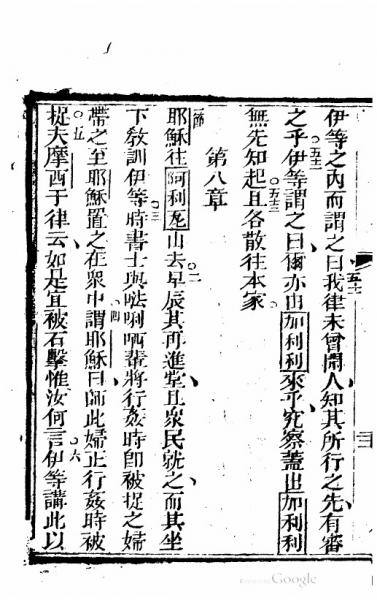 伊等之內而謂之曰我律未曾聞人知其所行之先有審
五十一
之乎伊等謂之曰爾亦由加利利來乎究察蓋出加利利
五二
無先知起且各散往本家
五三
第八章
節
耶穌往阿利瓦山去早辰其再進堂且眾民就之而其坐
二
下敎訓伊等時書士與𠵽唎哂輩將行姦時卽被捉之婦
三
帶之至耶穌置之在眾中謂耶穌曰師此婦正行姦時被
四
捉夫摩西于律云如是宜被石擊惟汝何言伊等講此以
五
六
Google